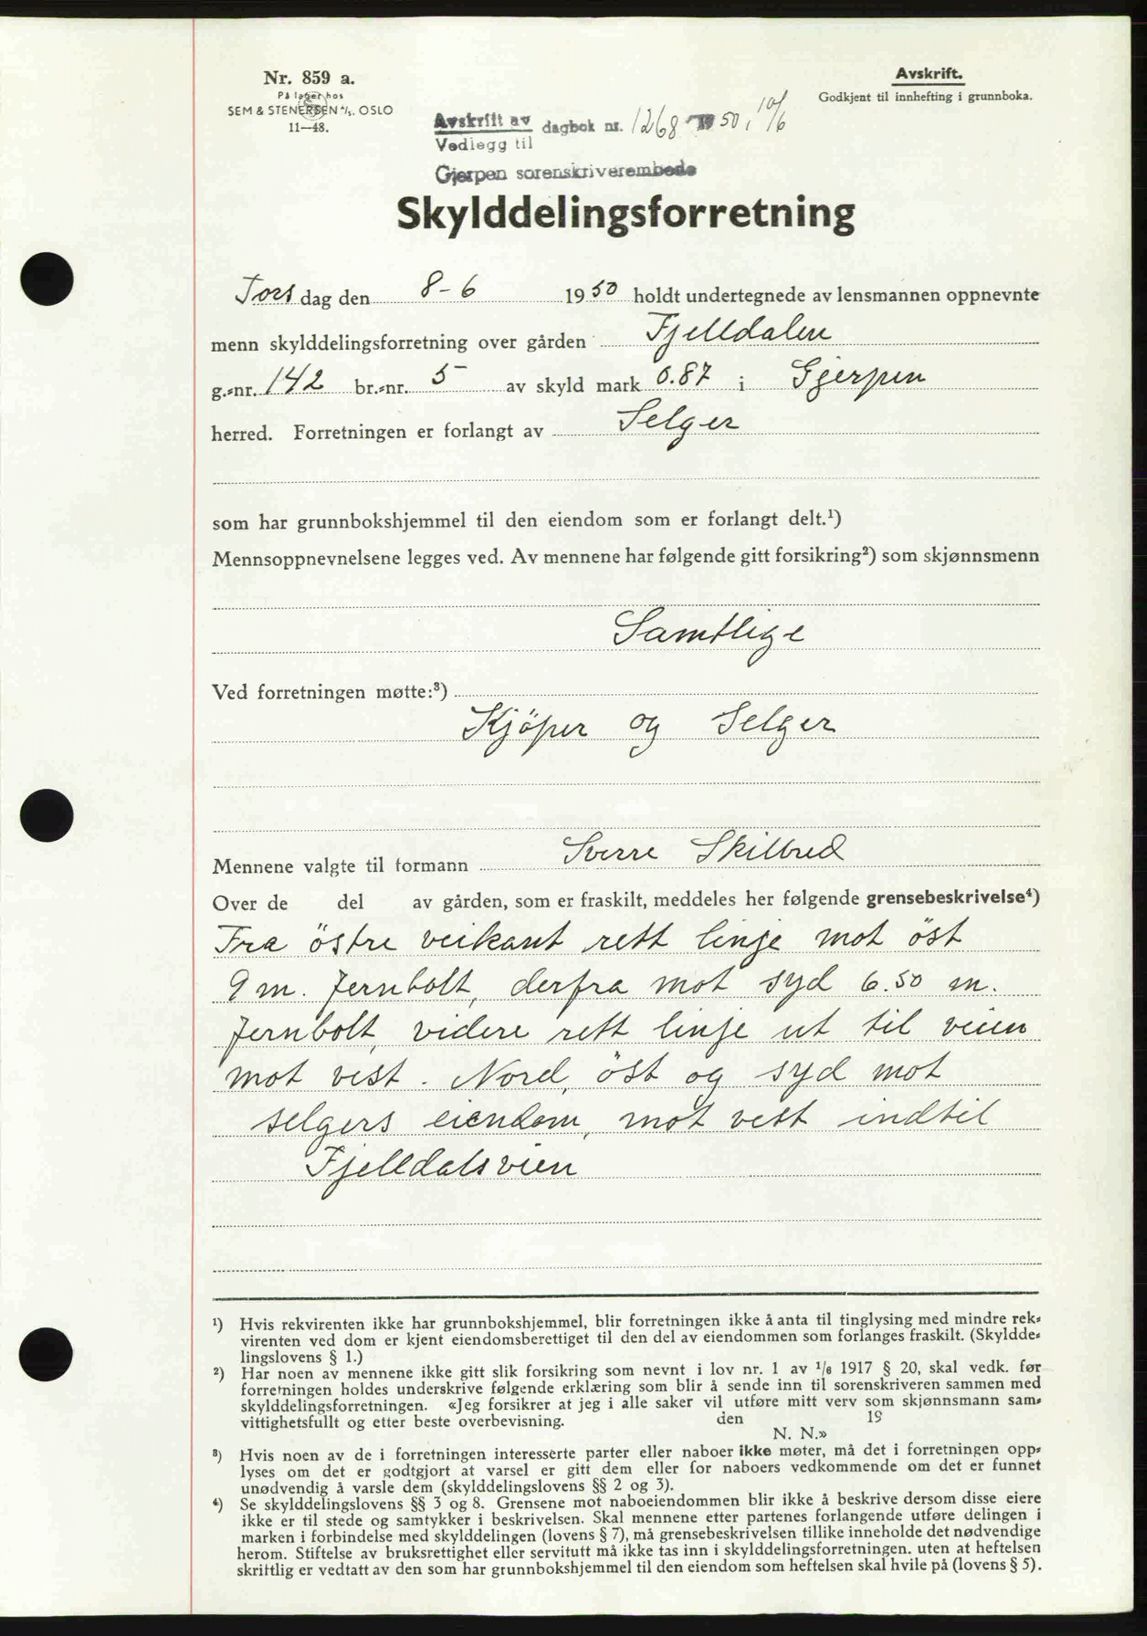 Nr. 859 a.
På lager hos
SEM & STENERSEN A/S. OSLO
11—48.
Avskrift.
Godkjent til innhefting i grunnboka.
Avskrift av
Vedlegg til
dagbok nr. 1268 19 50, 10/6
Gjerpen sorenskriverembede
Skylddelingsforretning
Torsdag den 8-6 1950 holdt undertegnede av lensmannen oppnevnte
menn skylddelingsforretning over gården Fjelldalen
g.-nr. 142 br.-nr. 5 av skyld mark 0.87 i Gjerpen
herred. Forretningen er forlangt av Selger
som har grunnbokshjemmel til den eiendom som er forlangt delt.¹)
Mennsoppnevnelsene legges ved. Av mennene har følgende gitt forsikring²) som skjønnsmenn
Samtlige
Ved forretningen møtte:³)
Kjöper og Selger
Mennene valgte til formann Sverre Skilbred
Over de del av gården, som er fraskilt, meddeles her følgende grensebeskrivelse⁴)
Fra östre veikant rett linje mot öst
9 m. Jernbolt, derfra mot syd 6.50 m.
Jernbolt, videre rett linje ut til veien
mot vest. Nord, öst og syd mot
selgers eiendom, mot vest indtil
Fjelldalsveien
¹) Hvis rekvirenten ikke har grunnbokshjemmel, blir forretningen ikke å anta til tinglysing med mindre rek-
virenten ved dom er kjent eiendomsberettiget til den del av eiendommen som forlanges fraskilt. (Skyldde-
lingslovens § 1.)
²) Har noen av mennene ikke gitt slik forsikring som nevnt i lov nr. 1 av 1/6 1917 § 20, skal vedk. før
forretningen holdes underskrive følgende erklæring som blir å sende inn til sorenskriveren sammen med
skylddelingsforretningen. «Jeg forsikrer at jeg i alle saker vil utføre mitt verv som skjønnsmann sam-
vittighetsfullt og etter beste overbevisning. den 19
N. N.»
³) Hvis noen av de i forretningen interesserte parter eller naboer ikke møter, må det i forretningen opp-
lyses om det er godtgjort at varsel er gitt dem eller for naboers vedkommende om det er funnet
unødvendig å varsle dem (skylddelingslovens §§ 2 og 3).
⁴) Se skylddelingslovens §§ 3 og 8. Grensene mot naboeiendommen blir ikke å beskrive dersom disse eiere
ikke er til stede og samtykker i beskrivelsen. Skal mennene etter partenes forlangende utføre delingen i
marken i forbindelse med skylddelingen (lovens § 7), må grensebeskrivelsen tillike inneholde det nødvendige
herom. Stiftelse av bruksrettighet eller servitutt må ikke tas inn i skylddelingsforretningen. uten at heftelsen
skriftlig er vedtatt av den som har grunnbokshjemmel til den eiendom som heftelsen skal hvile på (lovens § 5).